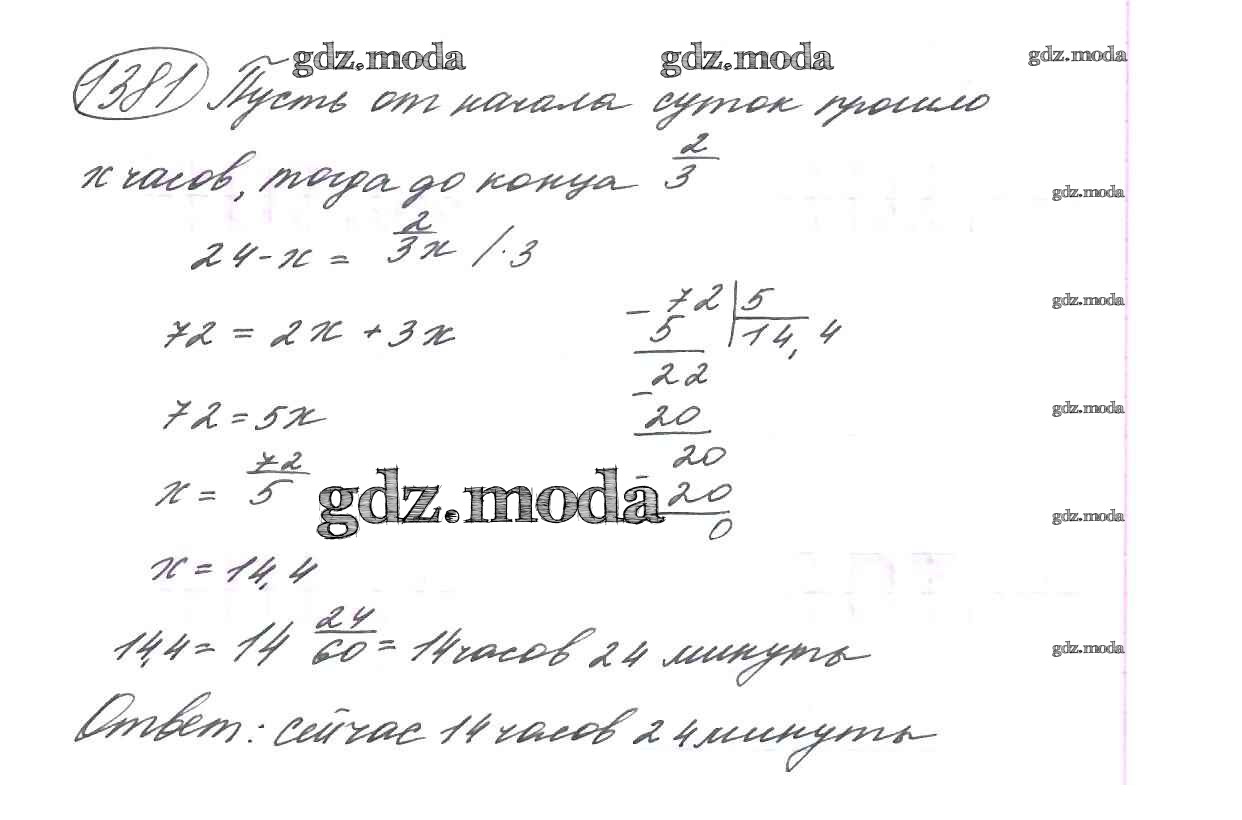 gdz.moda gdz.moda gdz.moda
1381 Пусть от начала суток прошло
x часов, тогда до конца 2/3
gdz.moda
24 - x = 2/3 x / · 3
gdz.moda
72 = 2x + 3x
72 = 5x
x = 72/5
x = 14,4
- 72 | 5
5 | 14,4
22
- 20
20
- 20
0
gdz.moda
gdz.moda
gdz.moda
14,4 = 14 24/60 = 14 часов 24 минуты
gdz.moda
Ответ: сейчас 14 часов 24 минуты